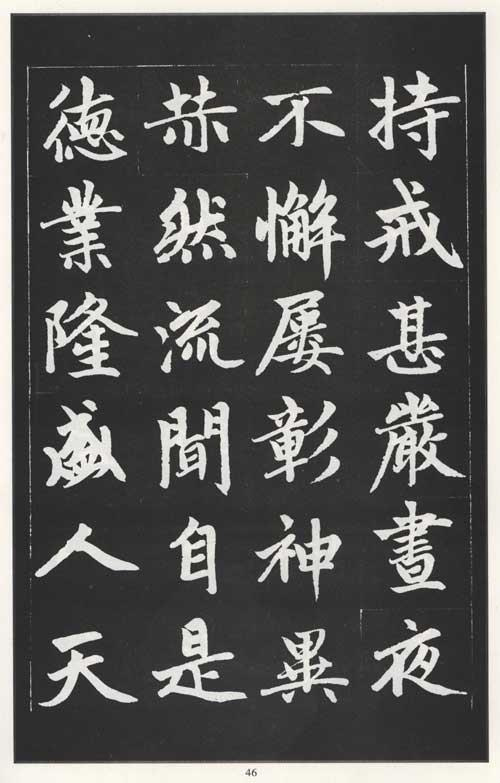 持戒甚嚴晝夜
不懈屢彰神異
赫然流聞自是
德業隆盛人天
46